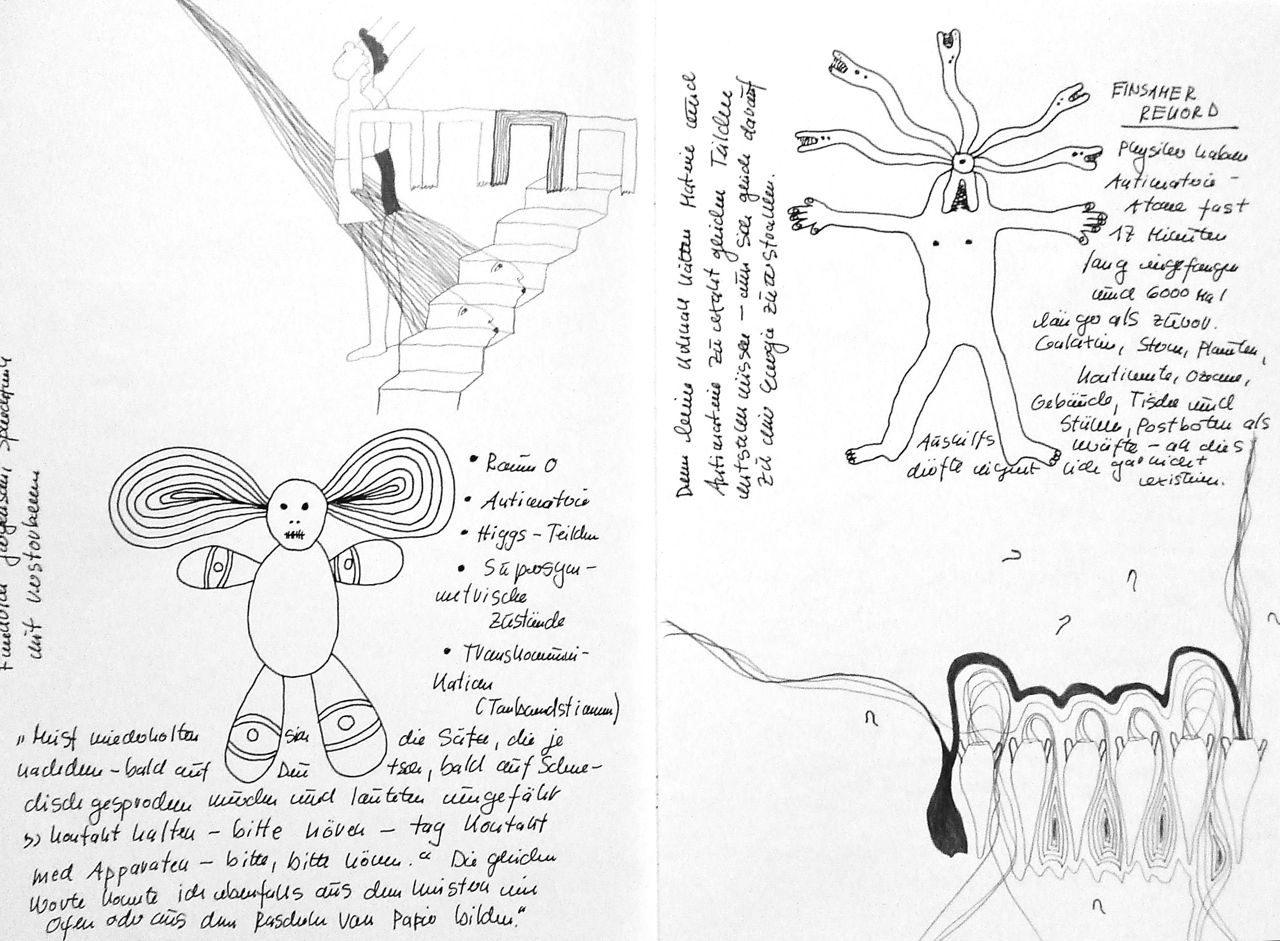 Friedrich Jürgenson: Sprechfunk
mit Verstorbenen
• Raum O
• Antimaterie
• Higgs-Teilchen
• Supersym-
metrische
Zustände
• Transkommuni-
kation
(Tonbandstimmen)
„Meist wiederholten sich die Sätze, die je
nachdem – bald auf Deutsch, bald auf Schwe-
disch gesprochen wurden und lauteten ungefähr
»Kontakt halten – bitte hören – tag Kontakt
med Apparaten – bitte, bitte hören.“ Die gleichen
Worte konnte ich ebenfalls aus dem Knistern im
Ofen oder aus dem Rascheln von Papier bilden.“
Denn beim Urknall hätten Materie und
Antimaterie zu exakt gleichen Teilen
entstehen müssen – um sich gleich darauf
zu reiner Energie zu zerstrahlen.
EINSAMER
REKORD
Physiker haben
Antimaterie-
Atome fast
17 Minuten
lang eingefangen
und 6000 Mal
länger als zuvor.
Galaxien, Stern, Planeten,
Kontinente, Ozeane,
Gebäude, Tische und
Stühle, Postboten als
Aushilfs kräfte – all dies
dürfte eigentlich gar nicht
existieren.